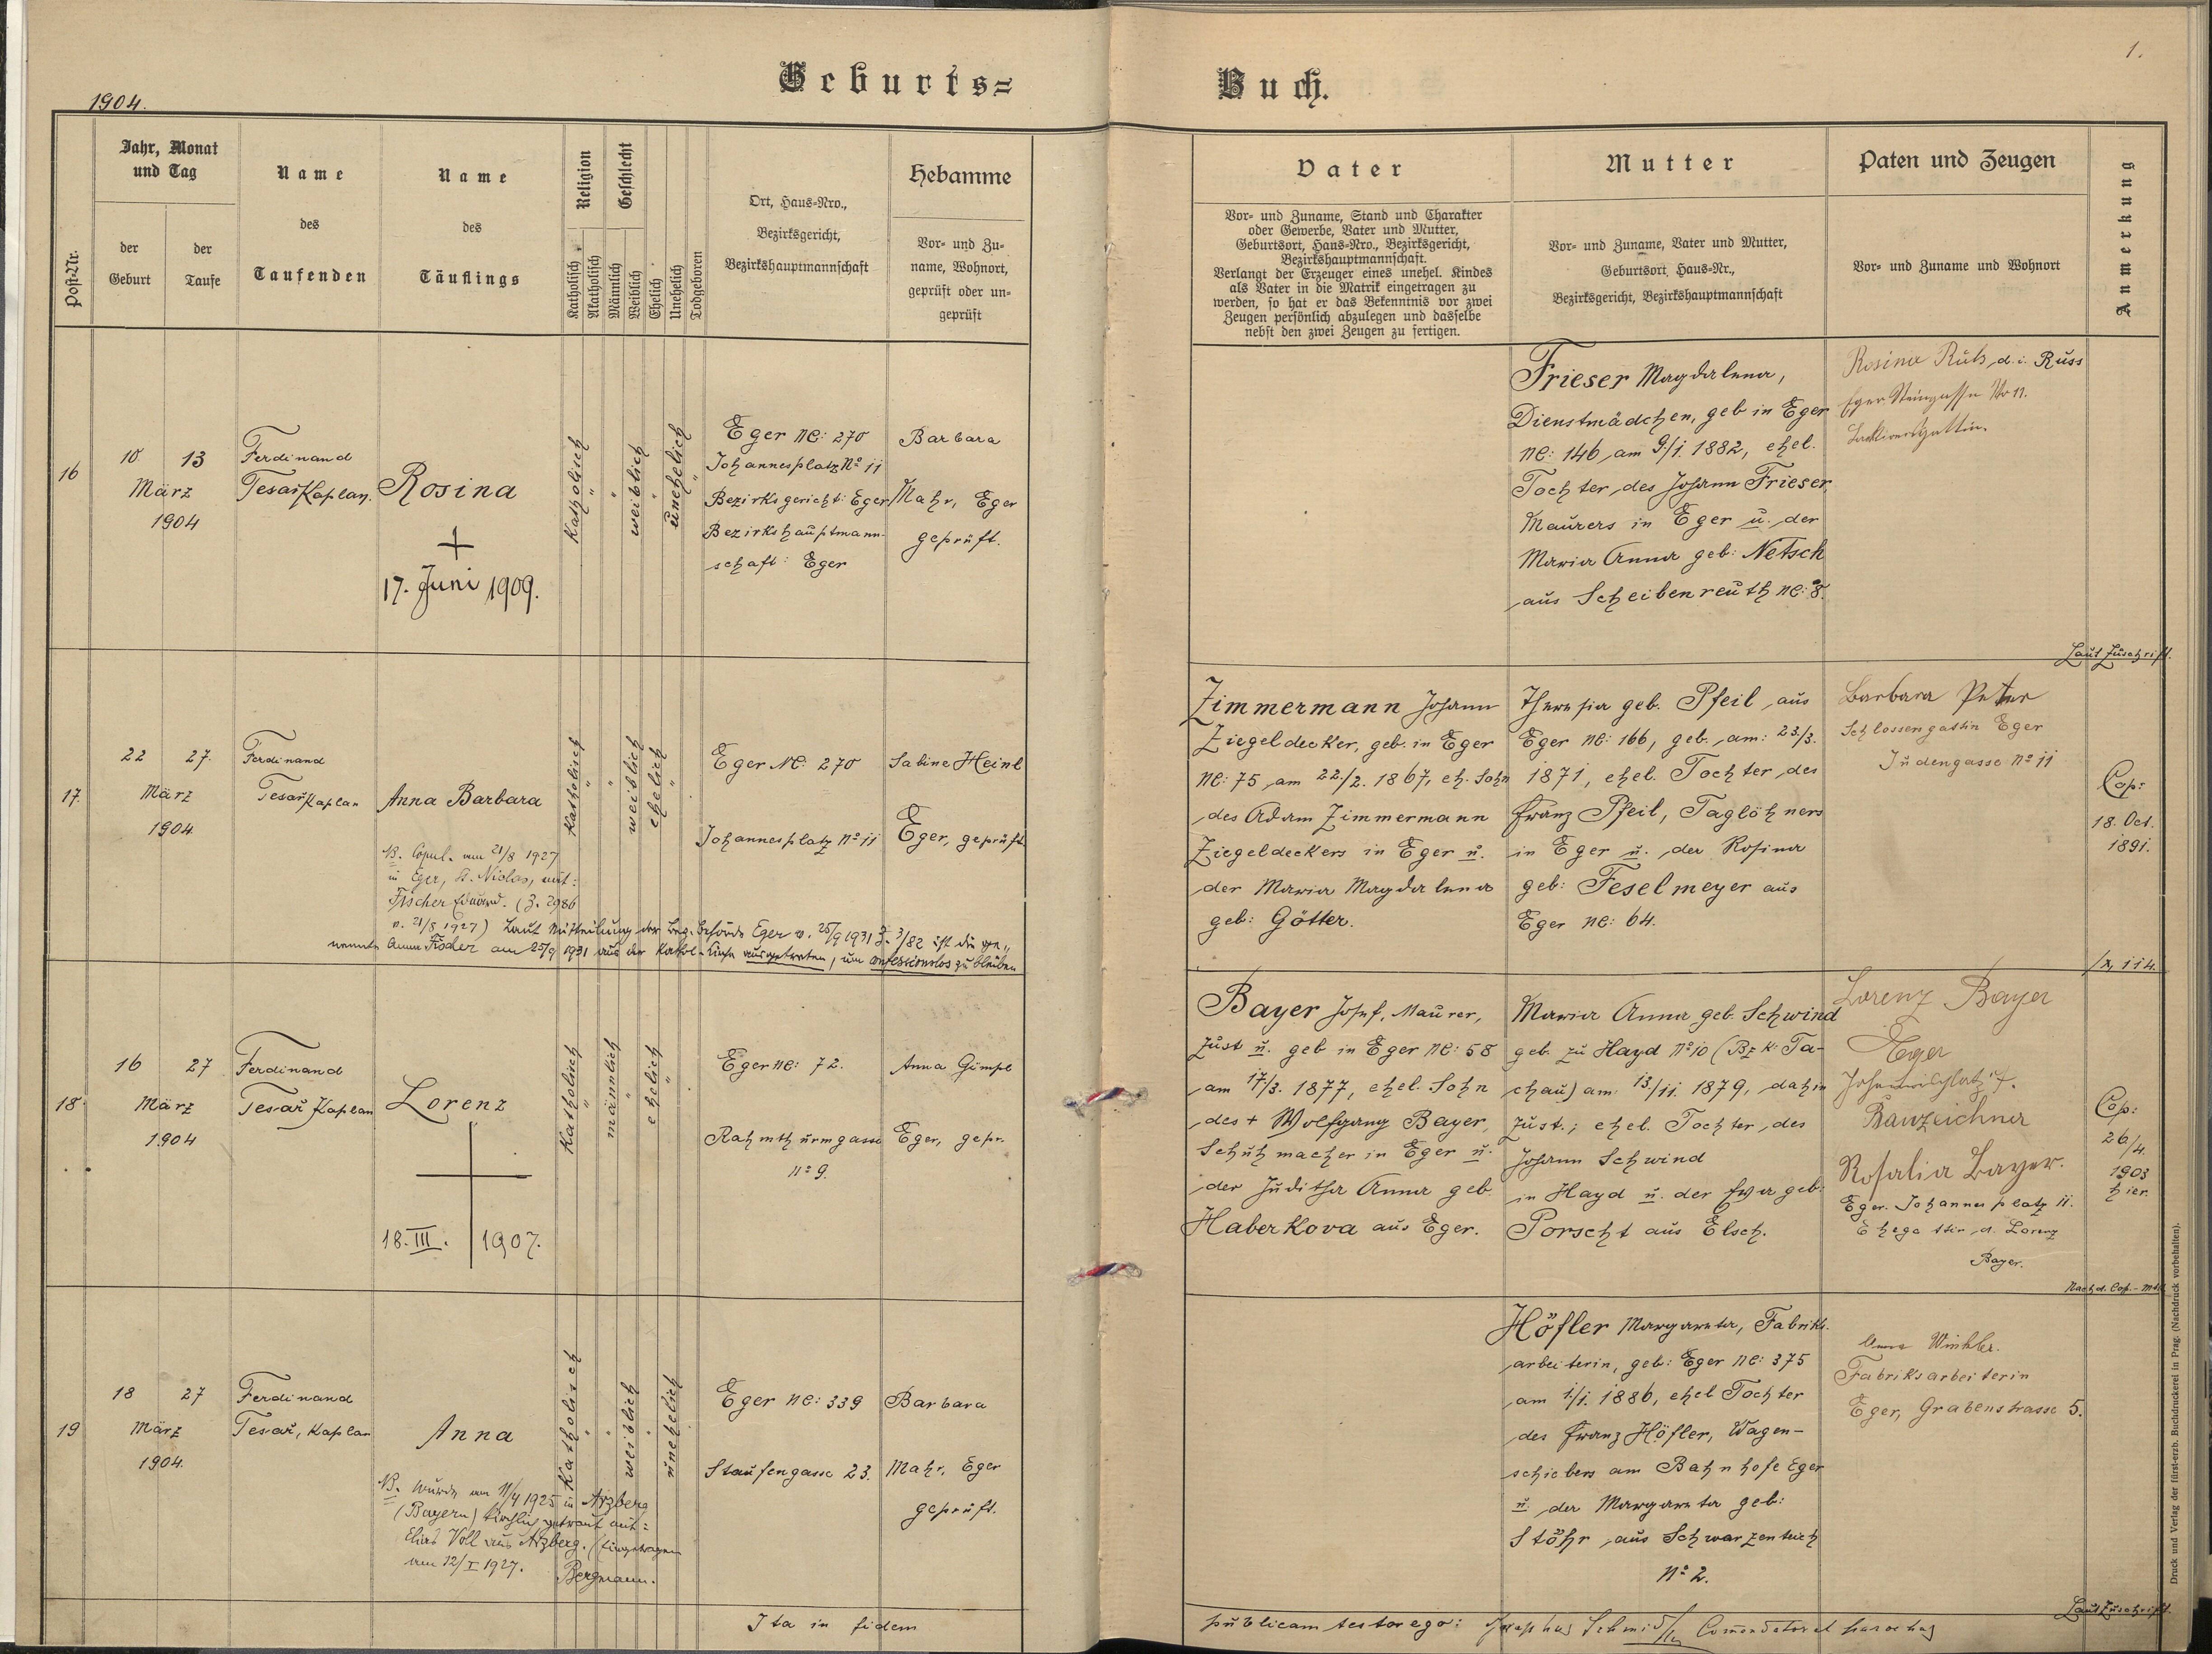 1904.
Geburts=
Buch.
1.
Post-Nr.
Jahr, Monat
und Tag
der
Geburt
der
Taufe
Name
des
Taufenden
Name
des
Täuflings
Religion
Katholisch
Akatholisch
Geschlecht
Männlich
Weiblich
Ehelich
Unehelich
Todgeboren
Ort, Haus-Nro.,
Bezirksgericht,
Bezirkshauptmannschaft
Hebamme
Vor- und Zu-
name, Wohnort,
geprüft oder un-
geprüft
Vater
Vor- und Zuname, Stand und Charakter
oder Gewerbe, Vater und Mutter,
Geburtsort, Haus-Nro., Bezirksgericht,
Bezirkshauptmannschaft.
Verlangt der Erzeuger eines unehel. Kindes
als Vater in die Matrik eingetragen zu
werden, so hat er das Bekenntnis vor zwei
Zeugen persönlich abzulegen und dasselbe
nebst den zwei Zeugen zu fertigen.
Mutter
Vor- und Zuname, Vater und Mutter,
Geburtsort, Haus-Nr.,
Bezirksgericht, Bezirkshauptmannschaft
Paten und Zeugen
Vor- und Zuname und Wohnort
Anmerkung
16
10 13
März
1904
Ferdinand
Tesař Kaplan.
Rosina
+
17. Juni 1909.
Katholisch
"
"
weiblich
"
unehelich
"
Eger NC: 270
Johannesplatz No 11
Bezirksgericht: Eger
Bezirkshauptmann-
schaft: Eger
Barbara
Mahr, Eger
geprüft.
Frieser Magdalena,
Dienstmädchen, geb in Eger
NC: 146 am 9/1. 1882, ehel.
Tochter des Johann Frieser
Maurers in Eger u. der
Maria Anna geb: Netsch
aus Scheibenreuth NC: 8.
Rosina Ruß, d. i. Russ
Eger Steingasse No 11.
Laut Zuschrift.
17.
22 27.
März
1904.
Ferdinand
Tesař Kaplan
Anna Barbara
NB. Copul. am 21/8 1927
in Eger, St. Niclas, mit:
Fischer Eduard. (Z. 2986
v. 21/8 1927) Laut Mitteilung der Bez. Behörde Eger v. 25/9 1931 Z. 3/82 ist die ge„
nannte Anna Fischer am 25/9 1931 aus der Kathol. Kirche ausgetreten, um confessionslos zu bleiben
Katholisch
"
"
weiblich
ehelich
"
Eger NC: 270
Johannesplatz No 11
Sabine Heinl
Eger, geprüft.
Zimmermann Johann
Ziegeldecker, geb. in Eger
NC: 75 am 22/2. 1867, eh. Sohn
des Adam Zimmermann
Ziegeldeckers in Eger u.
der Maria Magdalena
geb: Götter.
Theresia geb. Pfeil, aus
Eger NC: 166, geb. am: 23/3.
1871, ehel. Tochter des
Franz Pfeil, Taglöhners
in Eger u. der Rosina
geb: Feselmeyer aus
Eger NC: 64.
Barbara Peter
Schlossergattin Eger
Judengasse No 11
Cop:
18. Oct.
1891.
/X, 114.
18.
16 27
März
1904
Ferdinand
Tesař Kaplan
Lorenz
18. III. 1907.
Katholisch
"
männlich
"
ehelich
"
Eger NC: 72.
Rahmthurmgasse
No 9.
Anna Gimpl
Eger, gepr.
Bayer Josef, Maurer,
zust u. geb in Eger NC: 58
am 17/3. 1877, ehel. Sohn
des + Wolfgang Bayer,
Schuhmacher in Eger u.
der Juditha Anna geb
Haberkova aus Eger.
Maria Anna geb. Schwind
geb. zu Hayd No 10 (Bzk: Ta-
chau) am: 13/11. 1879, dahin
zust.; ehel. Tochter des
Johann Schwind
in Hayd u. der Eva geb:
Porscht aus Elsch.
Lorenz Bayer
Eger
Bauzeichner
Rosalia Bayer.
Eger. Johannesplatz 11.
Ehegattin d. Lorenz
Bayer.
Cop:
26/4.
1903
hier.
Nach d. Cop.-
19
18 27
März
1904.
Ferdinand
Tesař, Kaplan
Anna
NB. Wurde am 11/4 1925 in Arzberg
(Bayern) kirchlich getraut mit:
Elias Voll aus Arzberg. (Eingetragen
am 12/I 1927. Bergmann.
Katholisch
"
"
weiblich
"
unehelich
Eger NC: 339
Staufengasse 23.
Barbara
Mahr, Eger
geprüft.
Höfler Margareta, Fabriks.
arbeiterin, geb: Eger NC: 375
am 1/1. 1886, ehel Tochter
des Franz Höfler, Wagen-
schiebers am Bahnhofe Eger
u. der Margareta geb:
Stöhr aus Schwarzenteich
No 2.
Anna Winkler.
Fabriksarbeiterin
Eger, Grabenstrasse 5.
Laut Zuschrift.
Ita in fidem
publicam testor ego: Josephus Schmidt Comendator et parochus
Druck und Verlag der fürst-erzb. Buchdruckerei in Prag. (Nachdruck vorbehalten).